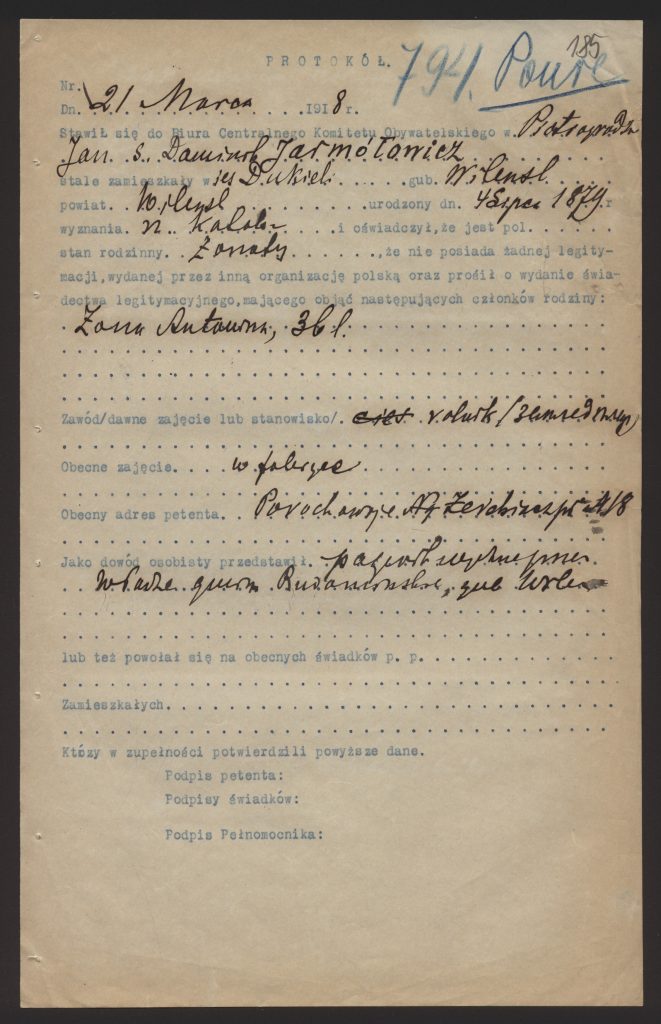 185
PROTOKÓŁ.
794.
Nr.
Dn. 21 Marca 1918 r.
Stawił się do Biura Centralnego Komitetu Obywatelskiego w.
Jan s. Dominik Jarmołowicz
stale zamieszkały w ies Dukieli gub. Wilensk.
powiat. Wilensk urodzony dn. 4 1879 r
wyznania. i oświadczył, że jest pol.
stan rodzinny. Żonaty, że nie posiada żadnej legity-
macji, wydanej przez inną organizację polską oraz prośił o wydanie świa-
dectwa legitymacyjnego, mającego objąć następujących członków rodziny:
Żona Antonina, 36 l.
Zawód/dawne zajęcie lub stanowisko/. rolnik
Obecne zajęcie. w fabryce
Obecny adres petenta. Porochowyje
Jako dowód osobisty przedstawił.
gub Wileń
lub też powołał się na obecnych świadków p. p.
Zamieszkałych.
Którzy w zupełności potwierdzili powyższe dane.
Podpis petenta:
Podpisy świadków:
Podpis Pełnomocnika: